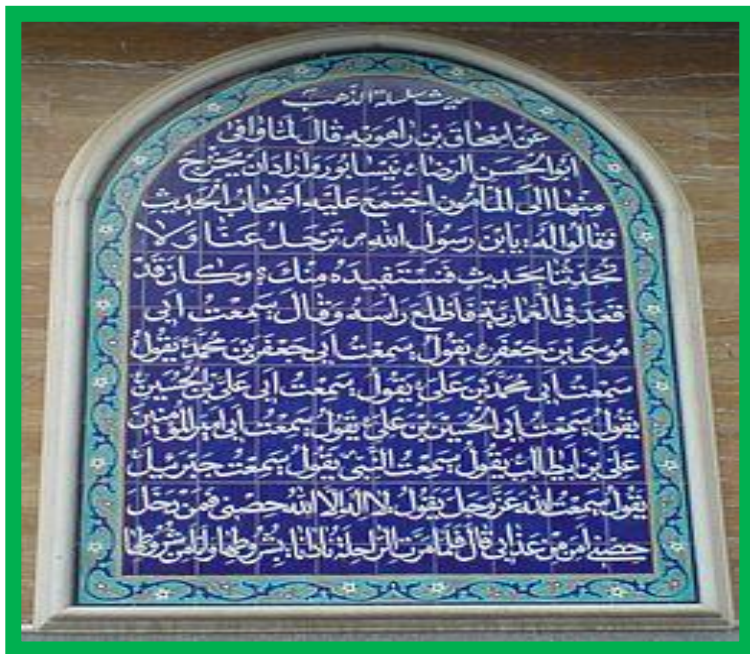 حدیث سلسلة الذهب
عن اسحاق بن راهویه قال لما وافی
ابوالحسن الرضاء نیسابور و اراد ان یخرج
منها الی المأمون اجتمع علیه اصحاب الحدیث
فقالوا له: یابن رسول الله ترحل عنا و لا
تحدثنا بحدیث فنستفیده منک؛ و کان قد
قعد فی العماریة فاطلع رأسه و قال: سمعت ابی
موسی بن جعفر یقول: سمعت ابی جعفر بن محمد یقول
سمعت ابی محمد بن علی یقول: سمعت ابی علی بن الحسین
یقول سمعت ابی الحسین بن علی یقول سمعت ابی امیرالمؤمنین
علی بن ابیطالب یقول سمعت النبی یقول سمعت جبرئیل
یقول سمعت الله عز و جل یقول: لا اله الا الله حصنی فمن دخل
حصنی امن من عذابی قال فلما مرت الراحلة نادانا: بشروطها و انا من شروطها